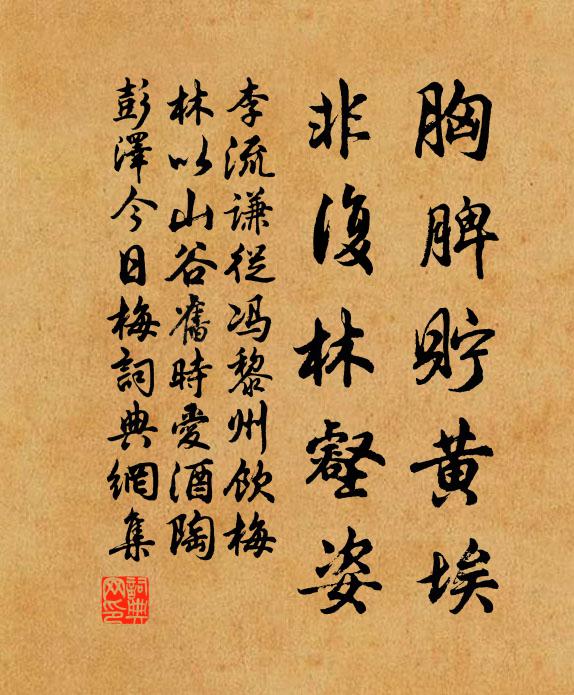 胸脾貯黄埃
非復林壑姿
李流谦從冯黎州飲梅
林以山谷舊時愛酒陶
彭澤今日梅詞典網集
詞典
网印